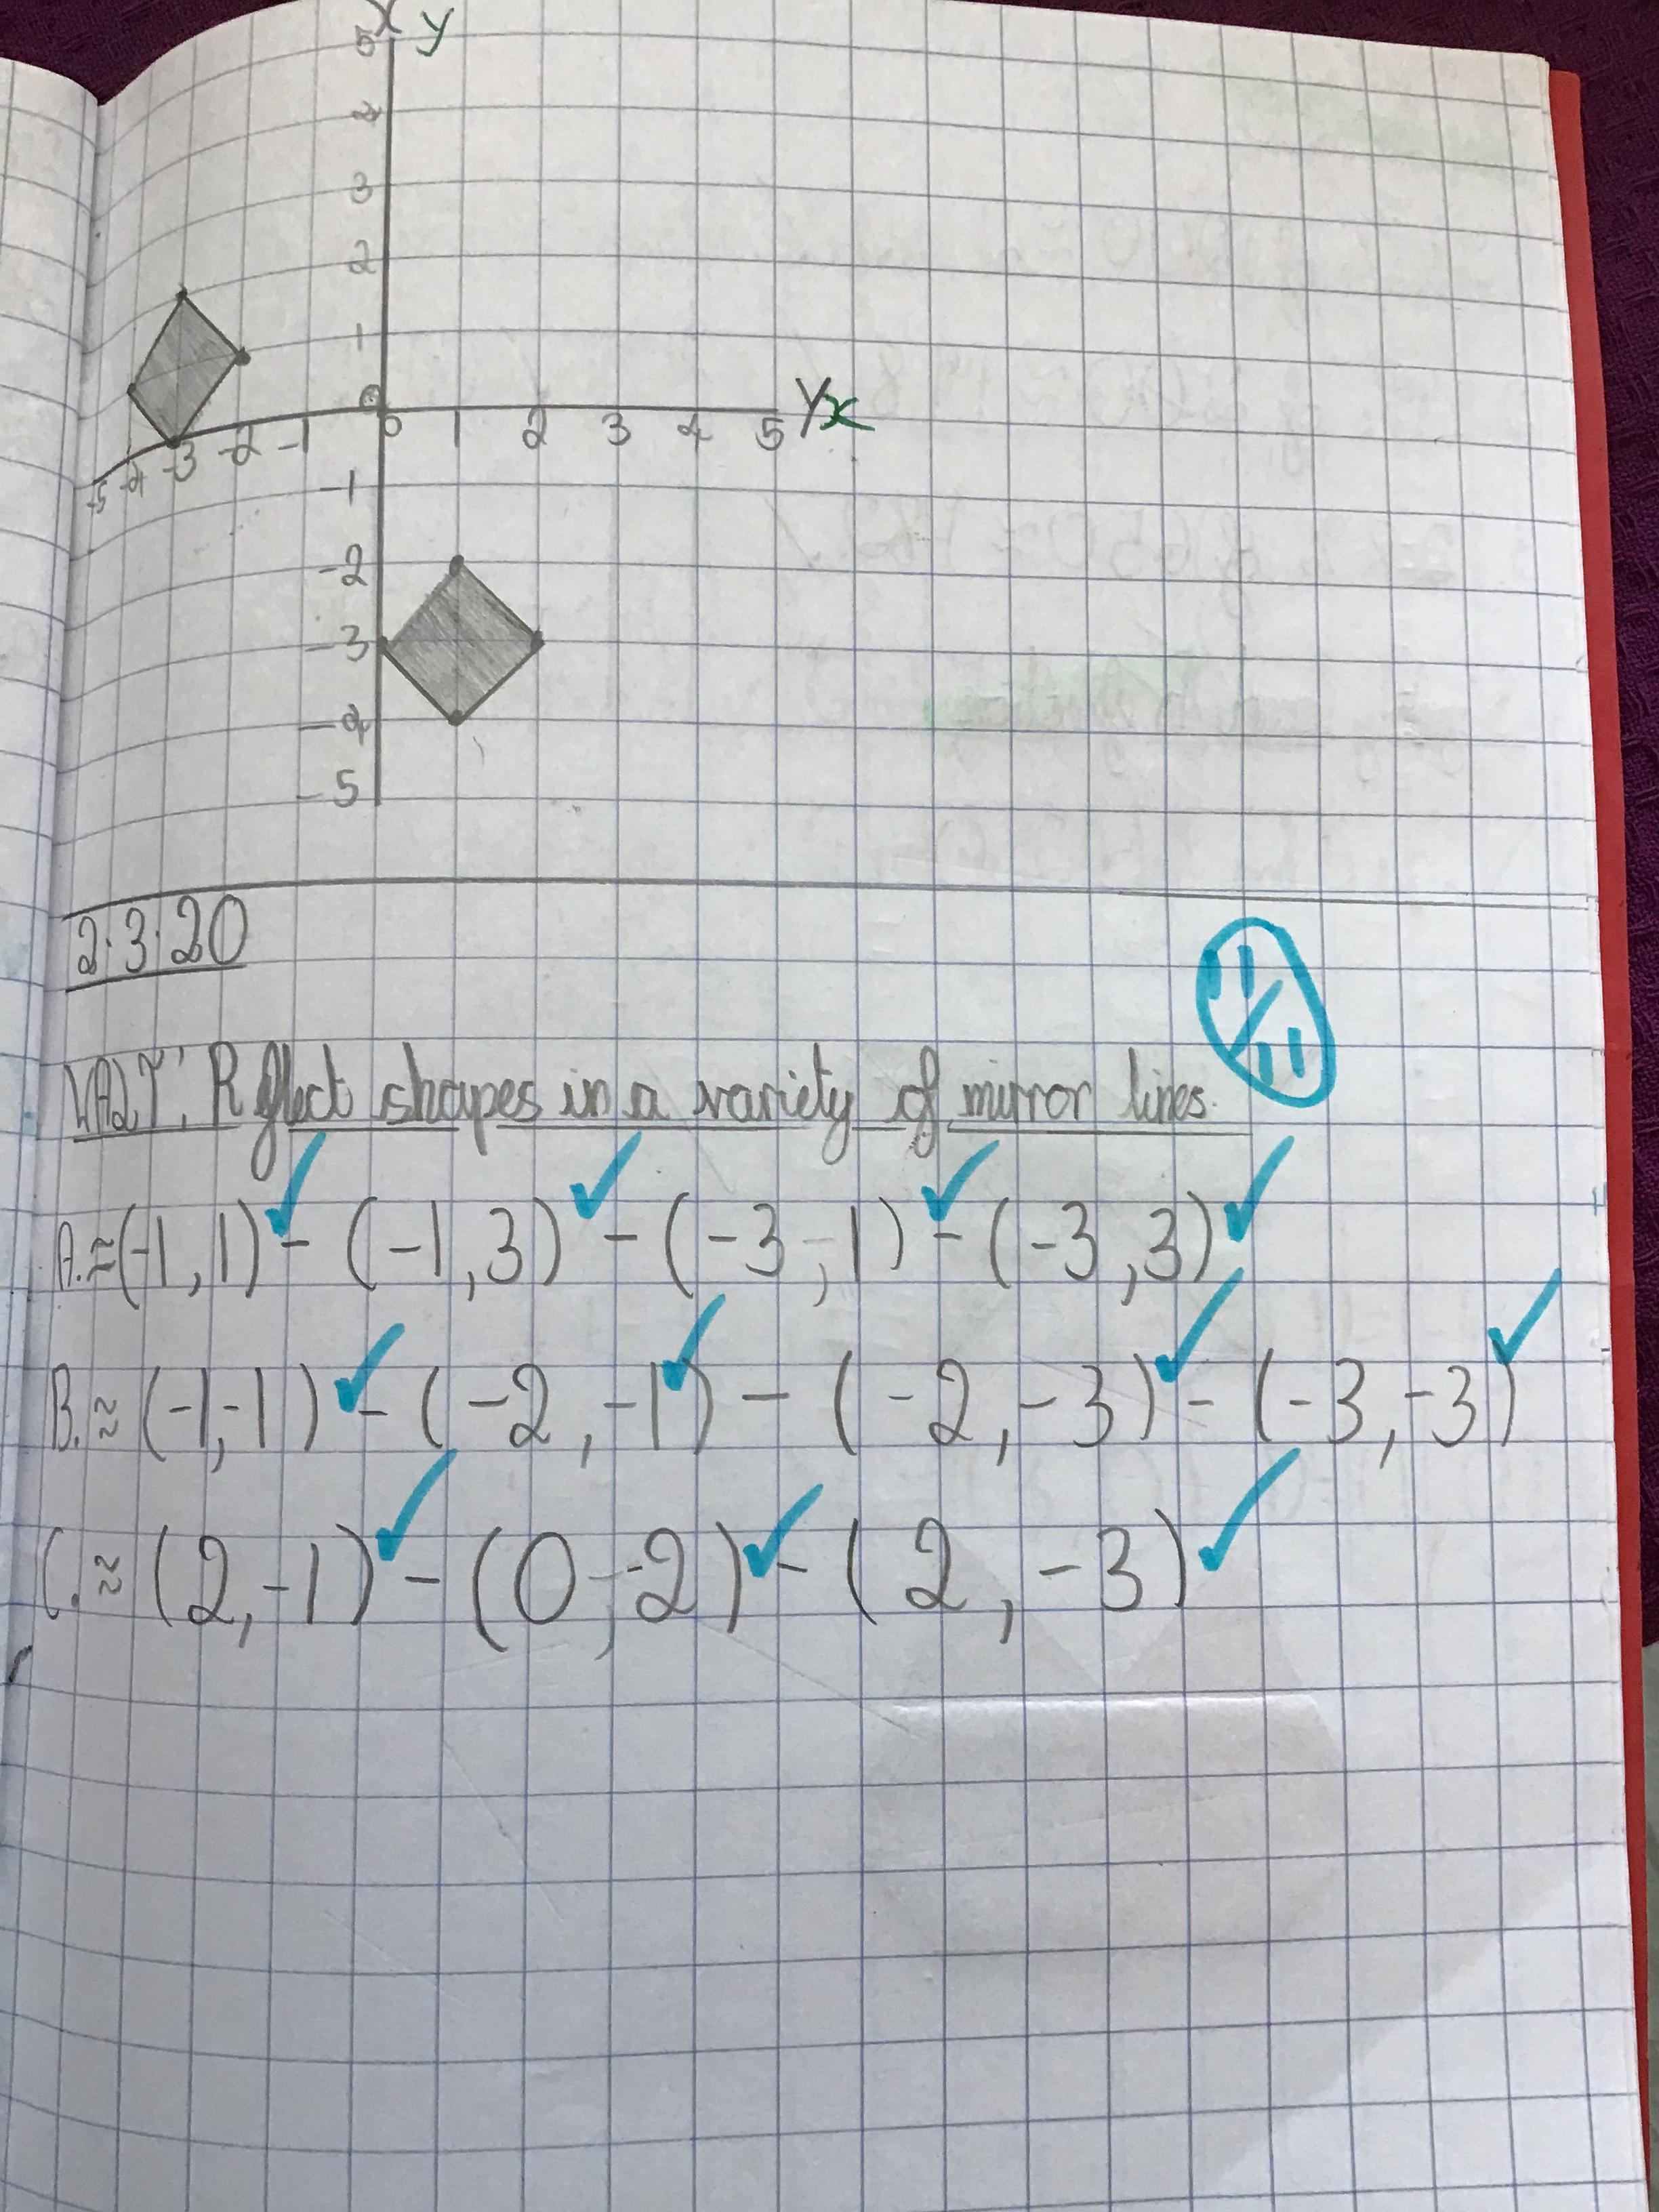 5 X y
4
3
2
1
0
-5 -4 -3 -2 -1 0 1 2 3 4 5 Y x
-1
-2
-3
-4
-5
2.3.20
11/11
WALT: Reflect shapes in a variety of mirror lines.
A. ≈ (-1, 1) ✓ - (-1, 3) ✓ - (-3, 1) ✓ - (-3, 3) ✓
B. ≈ (-1, -1) ✓ - (-2, -1) ✓ - (-2, -3) ✓ - (-3, -3) ✓
C. ≈ (2, -1) ✓ - (0, -2) ✓ - (2, -3) ✓